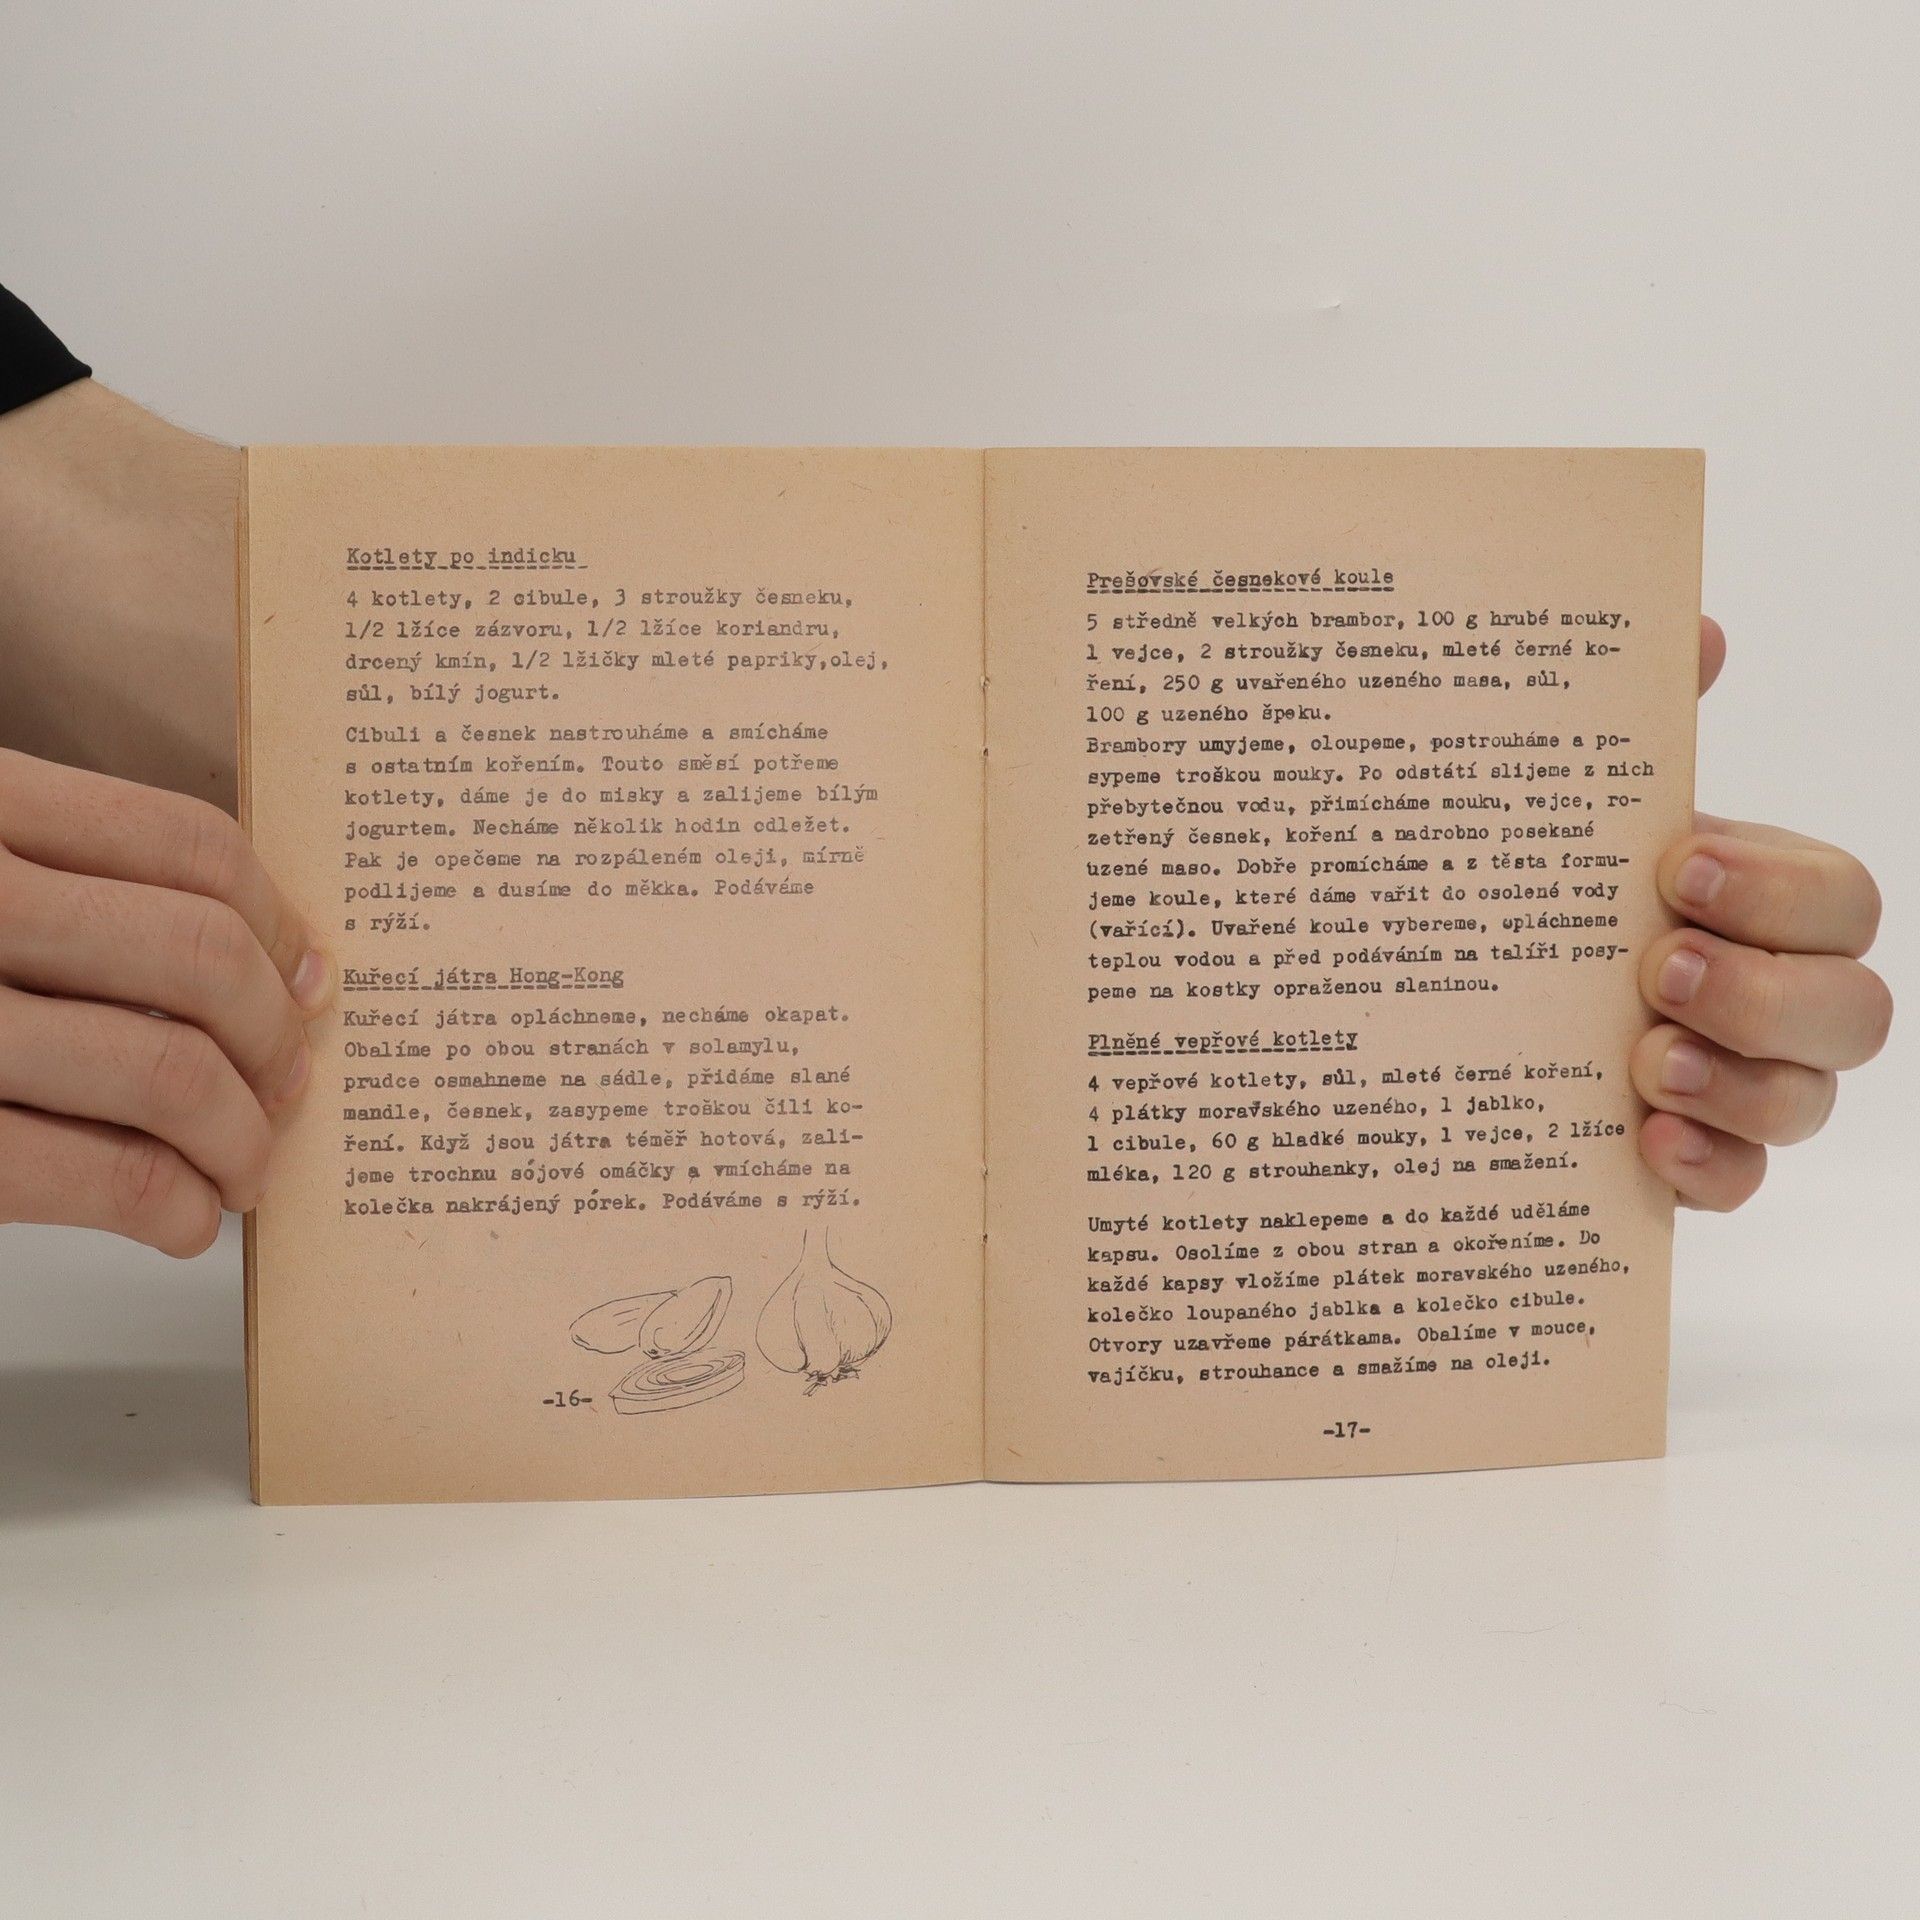 Kotlety po indicku
4 kotlety, 2 cibule, 3 stroužky česneku,
1/2 lžíce zázvoru, 1/2 lžíce koriandru,
drcený kmín, 1/2 lžičky mleté papriky,olej,
sůl, bílý jogurt.
Cibuli a česnek nastrouháme a smícháme
s ostatním kořením. Touto směsí potřeme
kotlety, dáme je do misky a zalijeme bílým
jogurtem. Necháme několik hodin odležet.
Pak je opečeme na rozpáleném oleji, mírně
podlijeme a dusíme do měkka. Podáváme
s rýží.
Kuřecí játra Hong-Kong
Kuřecí játra opláchneme, necháme okapat.
Obalíme po obou stranách v solamylu,
prudce osmahneme na sádle, přidáme slané
mandle, česnek, zasypeme troškou čili ko-
ření. Když jsou játra téměř hotová, zali-
jeme trochnu sójové omáčky a vmícháme na
kolečka nakrájený pórek. Podáváme s rýží.
-16-
Prešovské česnekové koule
5 středně velkých brambor, 100 g hrubé mouky,
1 vejce, 2 stroužky česneku, mleté černé ko-
ření, 250 g uvařeného uzeného masa, sůl,
100 g uzeného špeku.
Brambory umyjeme, oloupeme, postrouháme a po-
sypeme troškou mouky. Po odstátí slijeme z nich
přebytečnou vodu, přimícháme mouku, vejce, ro-
zetřený česnek, koření a nadrobno posekané
uzené maso. Dobře promícháme a z těsta formu-
jeme koule, které dáme vařit do osolené vody
(vařící). Uvařené koule vybereme, opláchneme
teplou vodou a před podáváním na talíři posy-
peme na kostky opraženou slaninou.
Plněné vepřové kotlety
4 vepřové kotlety, sůl, mleté černé koření,
4 plátky moravského uzeného, 1 jablko,
1 cibule, 60 g hladké mouky, 1 vejce, 2 lžíce
mléka, 120 g strouhanky, olej na smažení.
Umyté kotlety naklepeme a do každé uděláme
kapsu. Osolíme z obou stran a okořeníme. Do
každé kapsy vložíme plátek moravského uzeného,
kolečko loupaného jablka a kolečko cibule.
Otvory uzavřeme párátkama. Obalíme v mouce,
vajíčku, strouhance a smažíme na oleji.
-17-